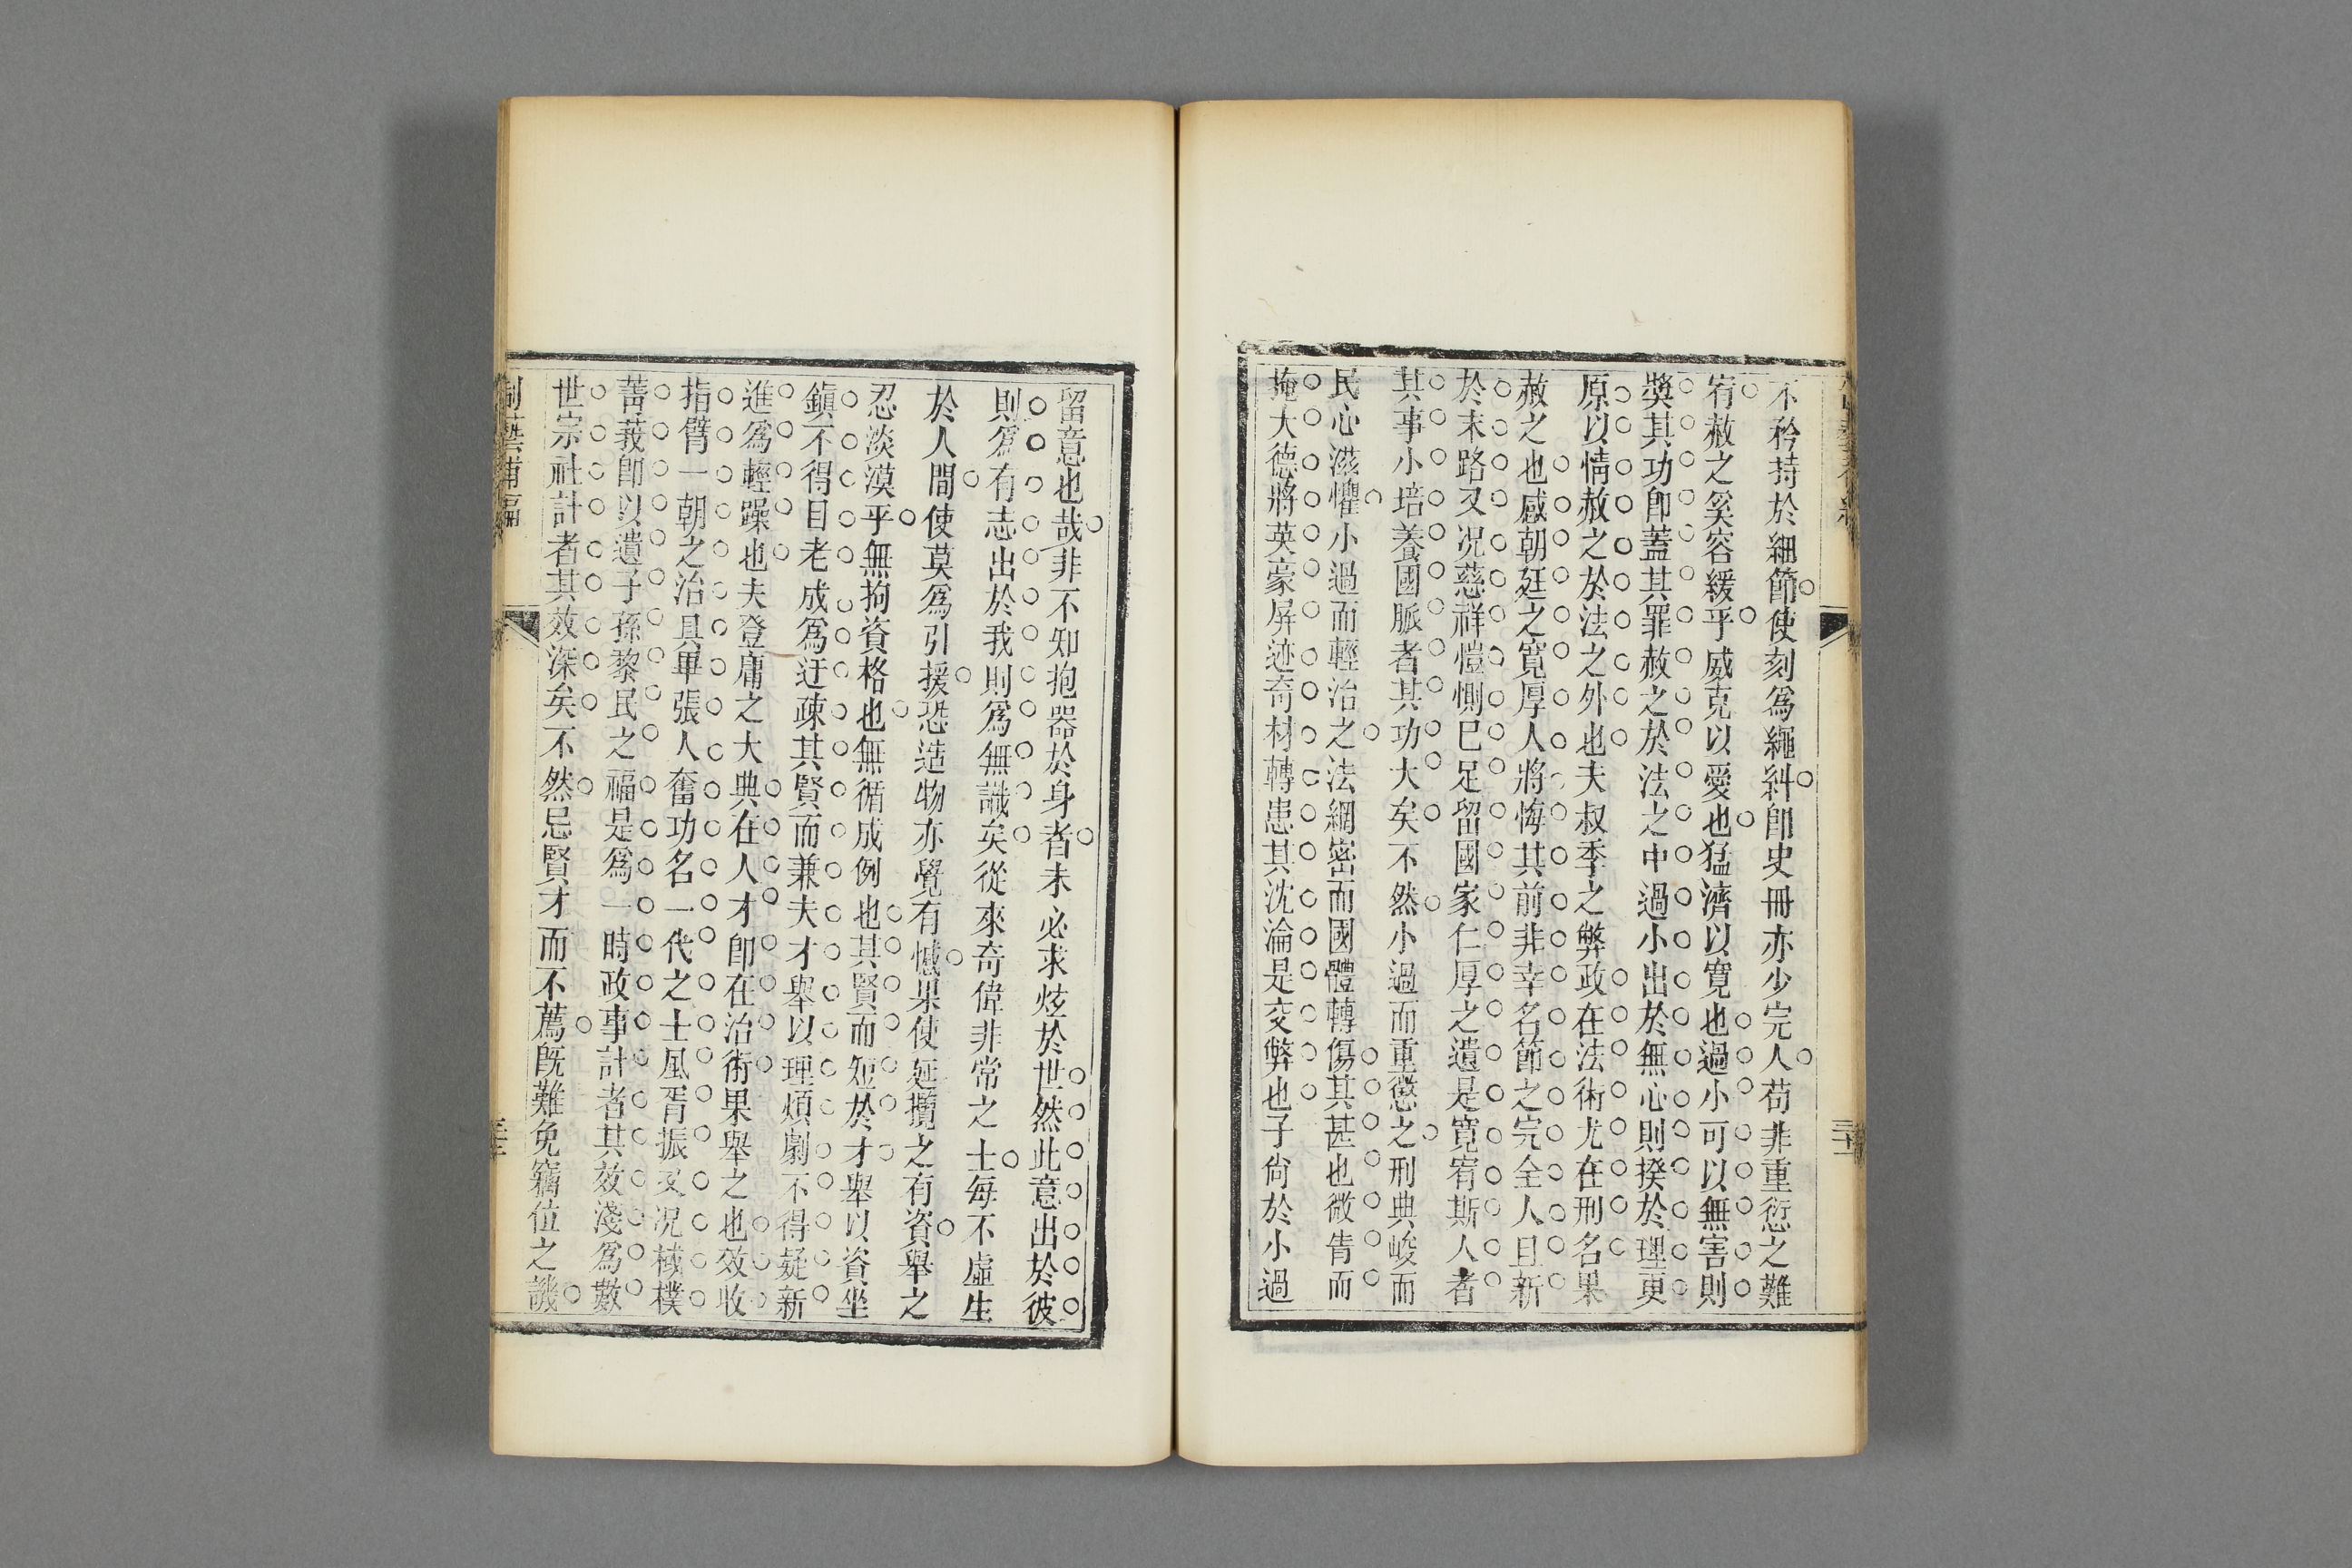 不矜持於細節使刻爲繩糾卽史冊亦少完人苟非重愆之難
宥赦之奚容緩乎威克以愛也猛濟以寬也過小可以無害則
奬其功卽蓋其罪赦之於法之中過小出於無心則揆於理更
原以情赦之於法之外也夫叔季之弊政在法術尤在刑名果
赦之也感朝廷之寬厚人將悔其前非幸名節之完全人且新
於末路又况慈祥愷惻已足留國家仁厚之遺是寬宥斯人者
其事小培養國脈者其功大矣不然小過而重懲之刑典峻而
民心滋懼小過而輕治之法網密而國體轉傷其甚也微眚而
掩大德將英豪屏迹奇材轉患其沈淪是交弊也子尙於小過
留意也哉非不知抱器於身者未必求炫於世然此意出於彼
則爲有志出於我則爲無識矣從來奇偉非常之士每不虛生
於人間使莫爲引援恐造物亦覺有憾果使延攬之有資舉之
忍淡漠乎無拘資格也無循成例也其賢而短於才舉以資坐
鎭不得目老成爲迂疎其賢而兼夫才舉以理煩劇不得疑新
進爲輕躁也夫登庸之大典在人才卽在治術果舉之也效收
指臂一朝之治具畢張人奮功名一代之士風胥振又况棫樸
菁莪卽以遺子孫黎民之福是爲一時政事計者其效淺爲數
世宗社計者其效深矣不然忌賢才而不薦旣難免竊位之譏
制藝補編